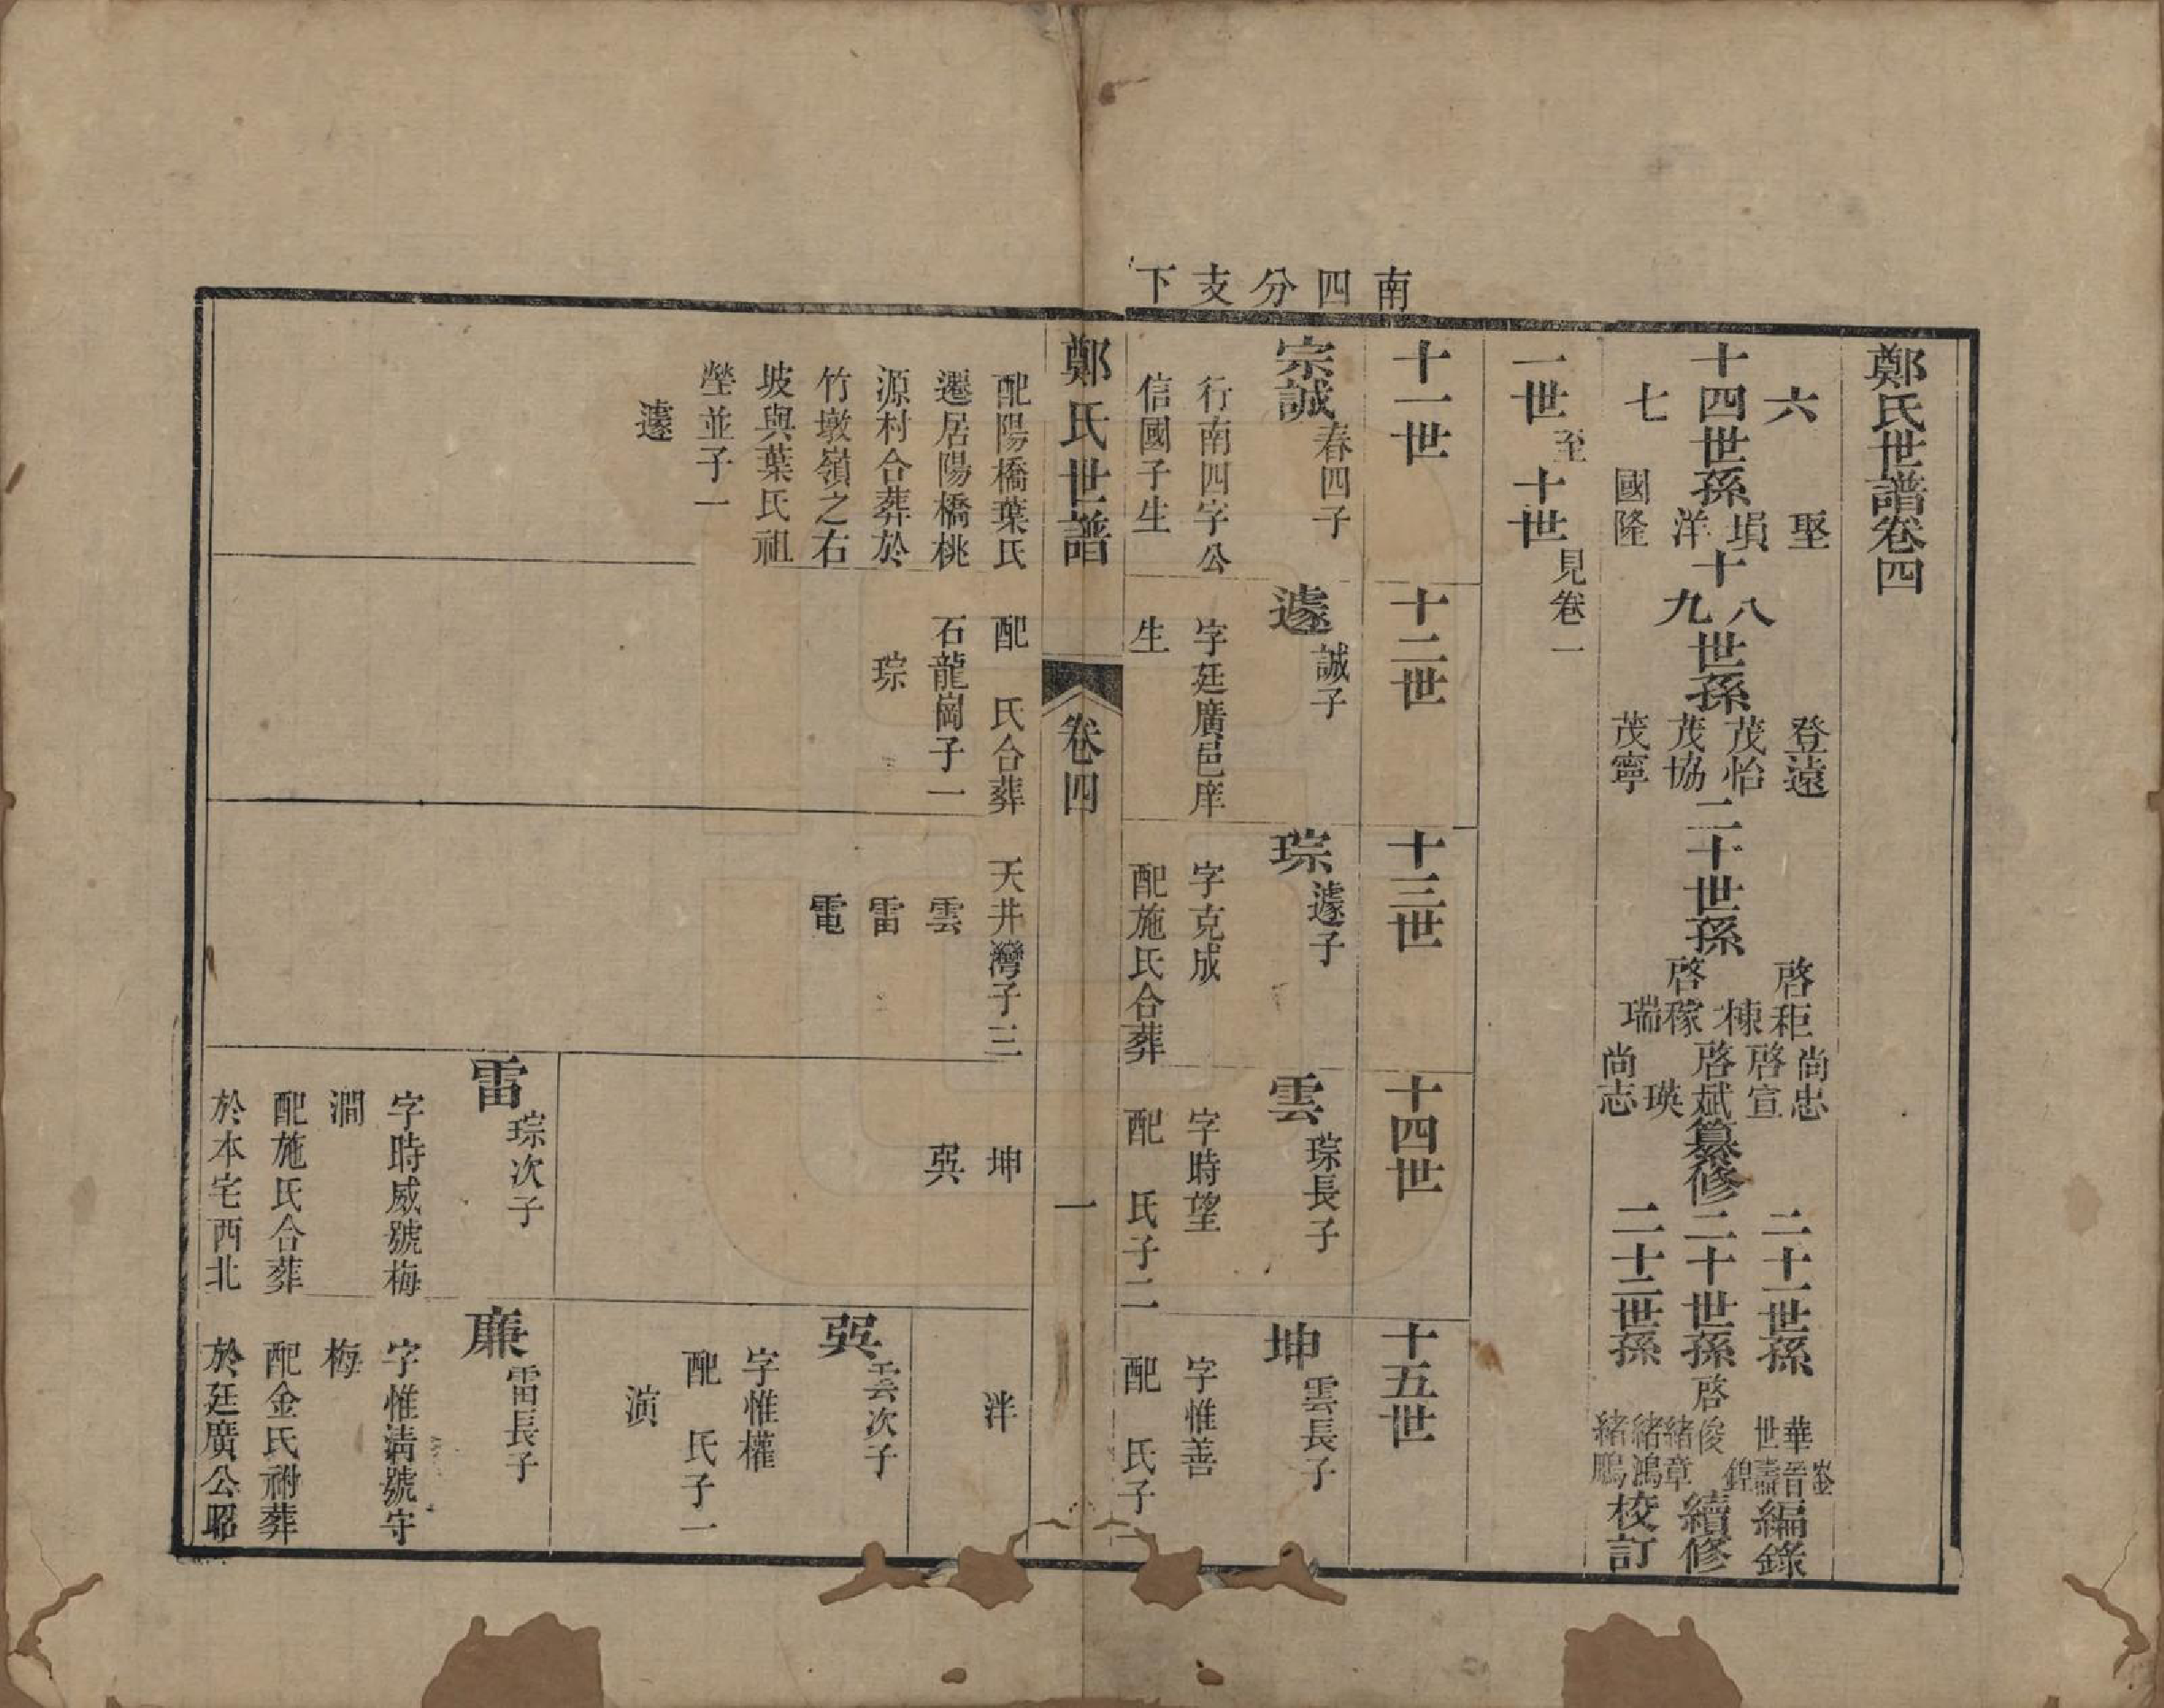 南四分支下
鄭氏世譜卷四
六
十四世孫
七
堅
塤
洋
國隆
十八世孫
九
登遠
茂怡
茂協
茂寧
二十世孫
啓秬
棟
啓稼
瑞
尚忠
啓宣
啓斌
瑛
尚志
纂修
二十一世孫
華
世
晉
壽
鍠
編錄
二十世孫
啓俊
緒章
續修
二十二世孫
緒鴻
緒鵬
校訂
一世至十世見卷一
十一世
十二世
十三世
十四世
十五世
宗誠春四子
行南四字公
信國子生
遽誠子
字廷廣邑庠
生
琮遽子
字克成
配施氏合葬
雲琮長子
字時望
配 氏子二
坤雲長子
字惟善
配 氏子一
鄭氏世譜 卷四 一
配陽橋葉氏
遷居陽橋桃
源村合葬於
竹墩嶺之右
坡與葉氏祖
塋並子一
遽
配 氏合葬
石龍崗子一
琮
天井灣子三
雲
雷
電
坤
巽
泮
巽雲次子
字惟權
配 氏子一
演
雷琮次子
字時威號梅
澗
配施氏合葬
於本宅西北
廉雷長子
字惟清號守
梅
配金氏祔葬
於廷廣公昭